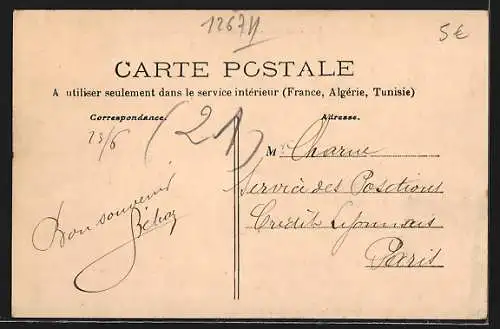 12671
5€
CARTE POSTALE
A utiliser seulement dans le service intérieur (France, Algérie, Tunisie)
Correspondance.
Adresse.
23/6
(21)
Mr Charue
Service des Positions
Crédit Lyonnais
Paris
Bon souvenir